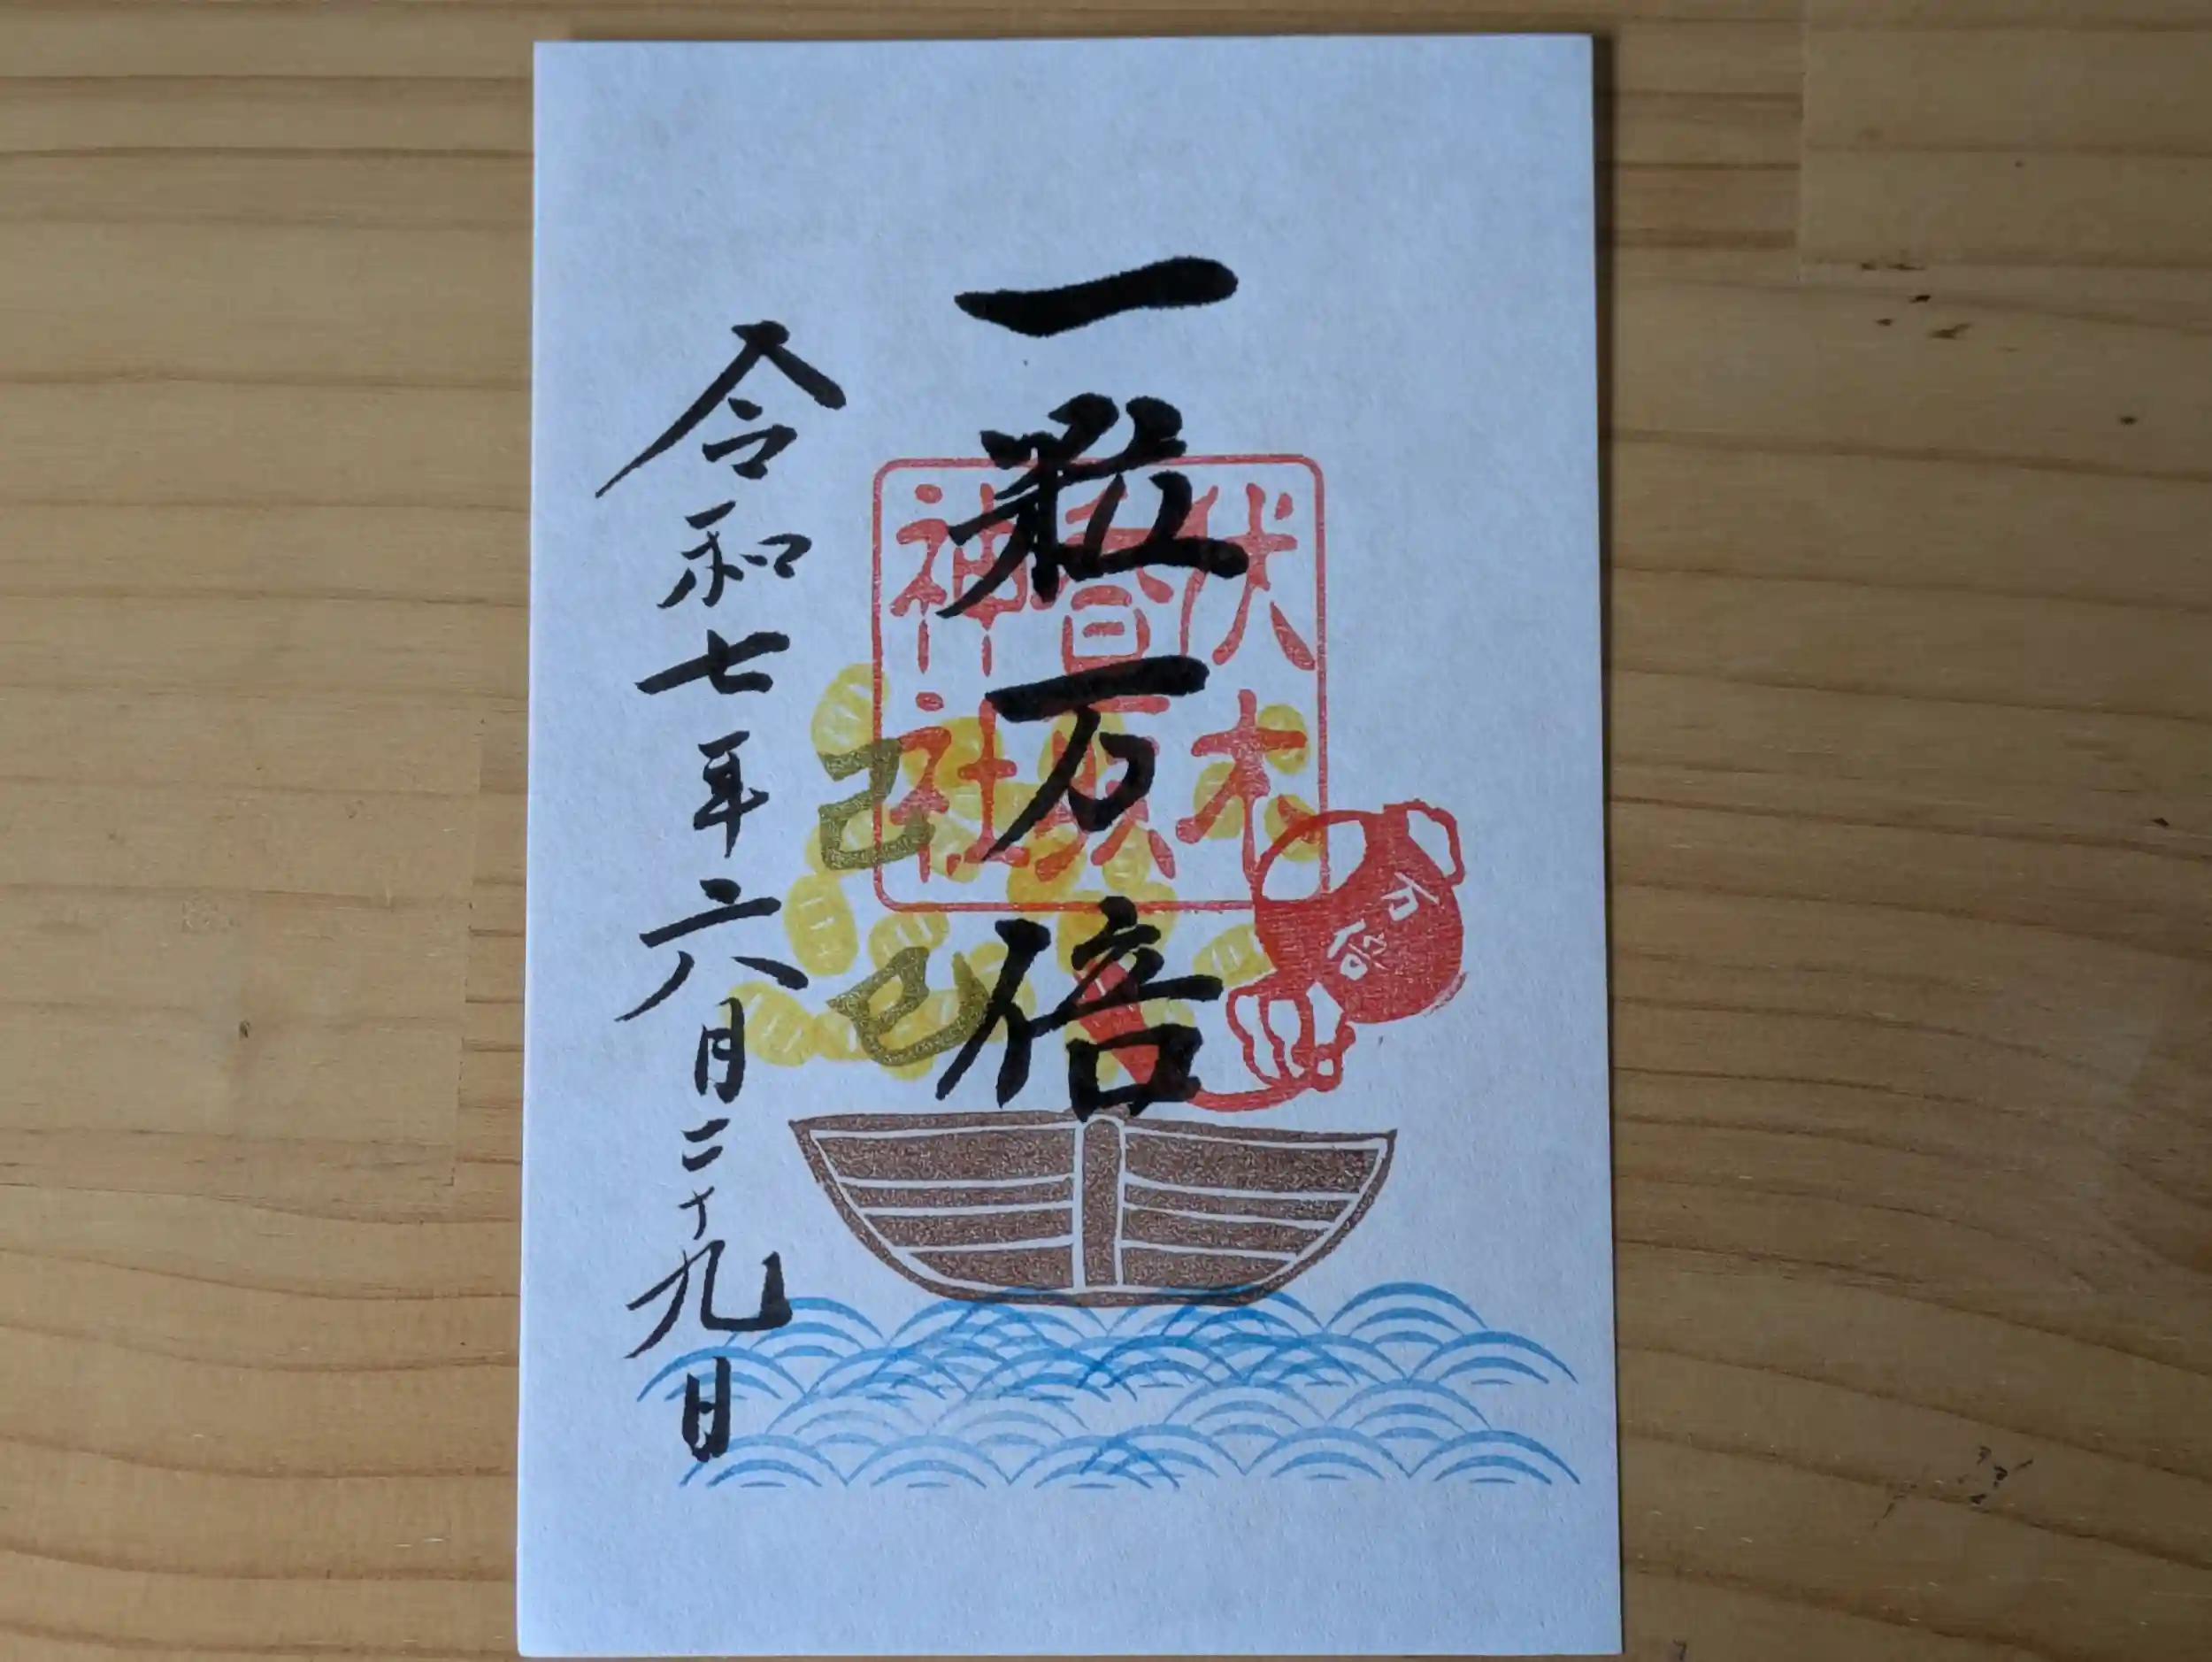 一粒万倍
伏木
香取
神社
万倍
己巳
令和七年六月二十九日